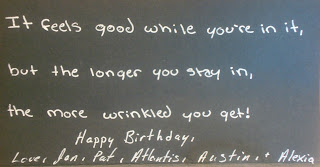 It feels good while you're in it,
but the longer you stay in,
the more wrinkled you get!
Happy Birthday,
Love, Jen, Pat, Atlantis, Austin, + Alexia